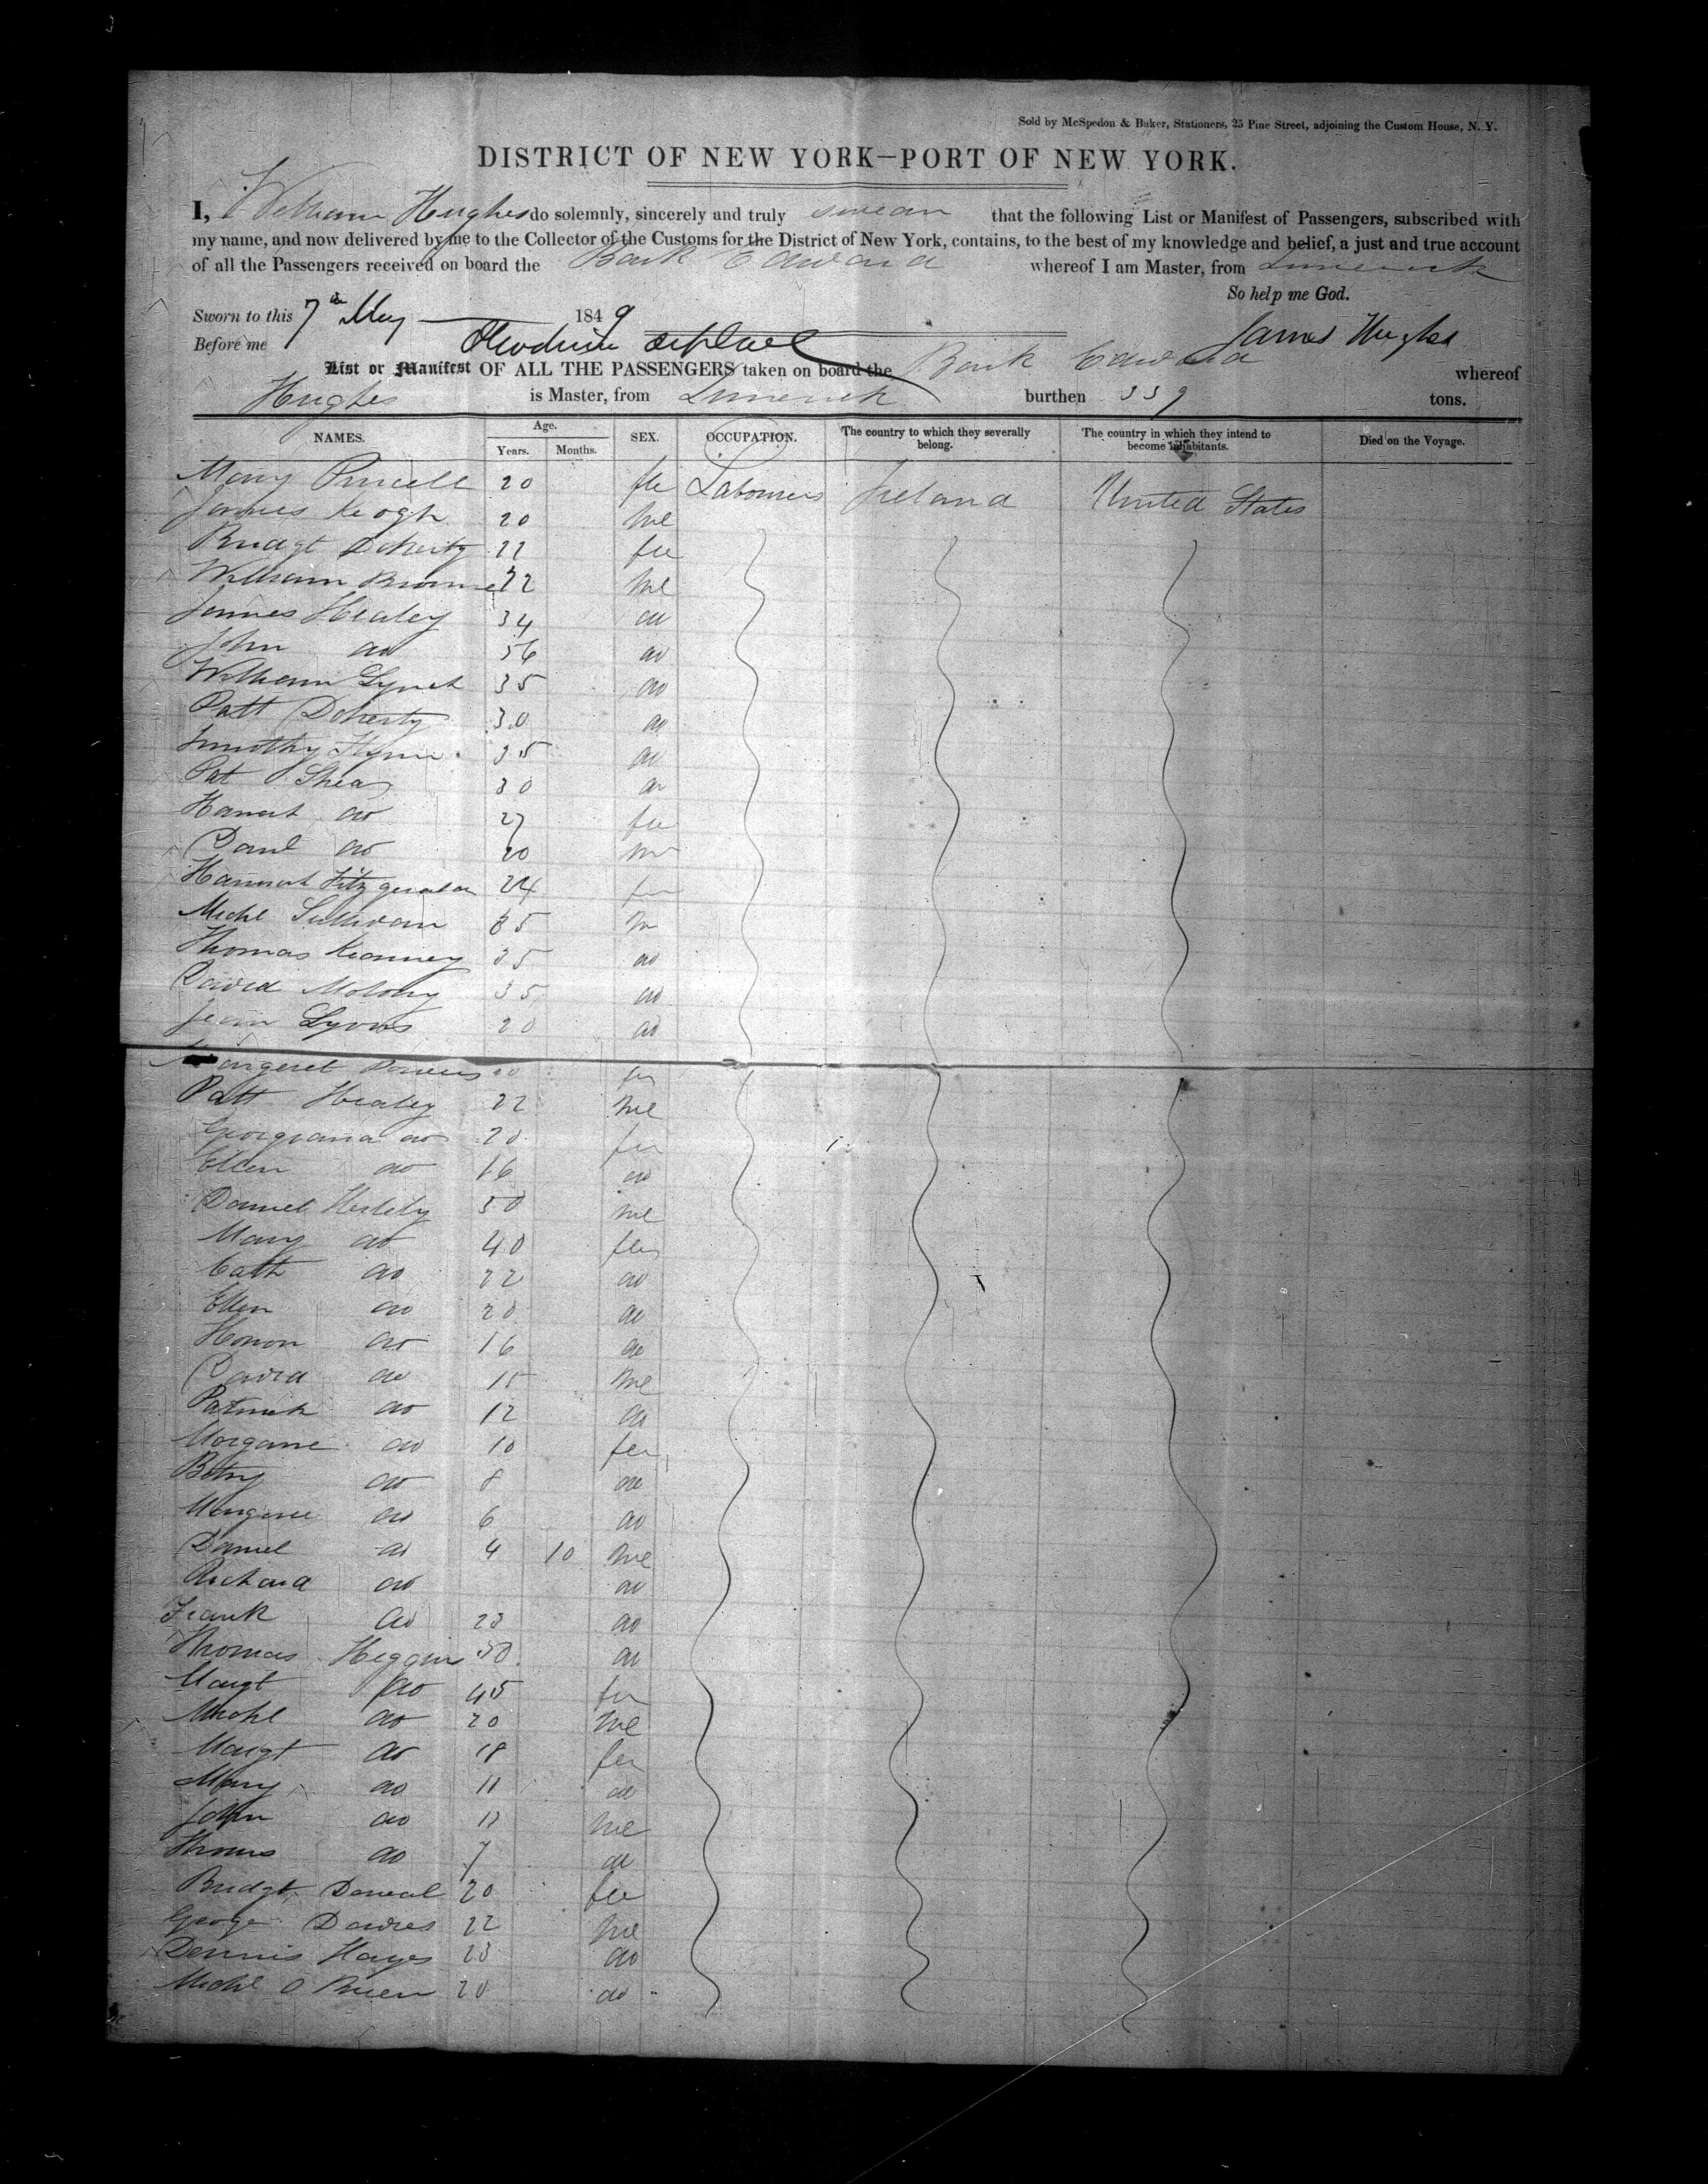 Sold by McSpedon & Baker, Stationers, 25 Pine Street, adjoining the Custom House, N. Y.
DISTRICT OF NEW YORK—PORT OF NEW YORK.
I, William Hughes do solemnly, sincerely and truly swear that the following List or Manifest of Passengers, subscribed with
my name, and now delivered by me to the Collector of the Customs for the District of New York, contains, to the best of my knowledge and belief, a just and true account
of all the Passengers received on board the Bark Edward whereof I am Master, from Limerick
So help me God.
Sworn to this 7th May 1849
Before me James Hughes
List or Manifest OF ALL THE PASSENGERS taken on board the Bark Edward whereof
Hughes is Master, from Limerick burthen 339 tons.
NAMES. Age. Years. Months. SEX. OCCUPATION. The country to which they severally belong. The country in which they intend to become inhabitants. Died on the Voyage.
Mary Purcell 20 fle Labourers Ireland United States
James Keogh 20 me
Bridgt Doherty 22 fe
William Browne 22 me
James Healey 34 do
John do 56 do
William Lynch 35 do
Patt Doherty 30 do
Timothy Flynn 35 do
Pat Shea 30 do
Hanah do 27 fe
Danl do 20 m
Hannah Fitzgerald 24 fe
Michl Sullivan 35 m
Thomas Kearney 35 do
David Molony 35 do
Lyons 20 do
Margeret 20 fe
Patt Healey 22 me
Georgiana do 20 fe
Ellen do 16 do
Daniel Herlihy 50 me
Mary do 40 fe
Cath do 22 do
Ellen do 20 do
Honor do 16 do
David do 15 me
Patrick do 12 do
do 10 fe
Betsy do 8 do
do 6 do
Daniel do 4 10 me
Richard do do
Frank do 23 do
Thomas Higgins 50 do
Margt do 45 fe
Michl do 20 me
Margt do 18 fe
Mary do 11 do
John do me
Thomas do 7 do
Bridgt 20 fe
George Davies 22 me
Dennis Hayes 23 do
Michl O Brien 20 do